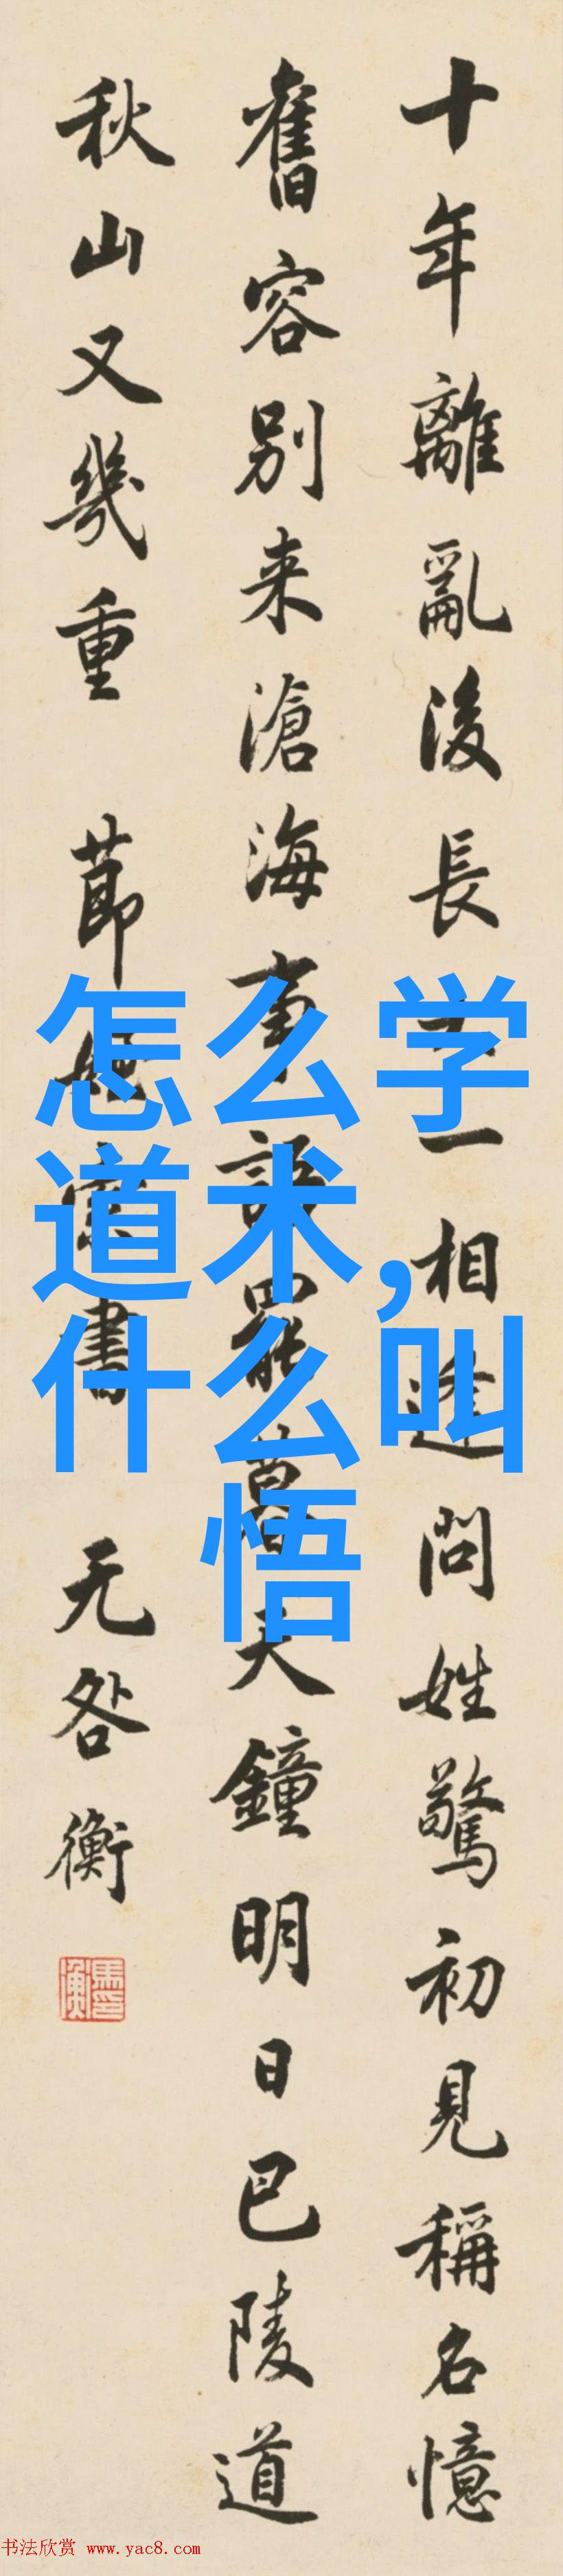 十年離亂後長大一相逢問姓驚初見稱名憶
舊容別来滄海事語罷暮天鐘明日巴陵道
秋山又幾重 莭索書 无咎衡
馬衡印
怎么学
道术,
什么叫
悟
书法欣赏 www.yac8.com